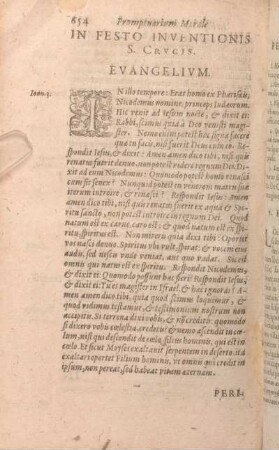 654 Promptuarium Morale
IN FESTO INVENTIONIS
S. CRVCIS.
EVANGELIVM.
Ioan.3.
IN illo tempore: Erat homo ex Pharisæis,
Nicodemus nomine, princeps Iudæorum.
Hic venit ad Iesum nocte, & dixit ei:
Rabbi, scimus quia à Deo venisti magi-
ster. Nemo enim potest hæc signa facere
quæ tu facis, nisi fuerit Deus cum eo. Re-
spondit Iesus, & dixit: Amen amen dico tibi, nisi quis
renatus fuerit denuo, non potest videre regnum Dei. Di-
xit ad eum Nicodemus: Quomodo potest homo renasci
cum sit senex? Numquid potest in ventrem matris suæ
iterum introire, & renasci? Respondit Iesus: Amen
amen dico tibi, nisi quis renatus fuerit ex aqua & Spi-
ritu sancto, non potest introire in regnum Dei. Quod
natum est ex carne, caro est: & quod natum est ex spi-
ritu, spiritus est. Non mireris quia dixi tibi: Oportet
vos nasci denuo. Spiritus vbi vult, spirat: & vocem eius
audis, sed nescis vnde veniat, aut quo vadat. Sic est
omnis qui natus est ex spiritu. Respondit Nicodemus,
& dixit ei: Quomodo possunt hæc fieri? Respondit Iesus,
& dixit ei: Tu es magister in Israel, & hæc ignoras? A-
men amen dico tibi, quia quod scimus loquimur, &
quod vidimus testamur, & testimonium nostrum non
accipitis. Si terrena dixi vobis, & nō creditis: quomodo
si dixero vobis cœlestia, credetis? & nemo ascendit in cœ-
lum, nisi qui descendit de cœlo, filius hominis, qui est in
cœlo. Et sicut Moyses exaltauit serpentem in deserto, ita
exaltari oportet Filium hominis, vt omnis qui credit in
ipsum, non pereat, sed habeat vitam æternam.
PERI-